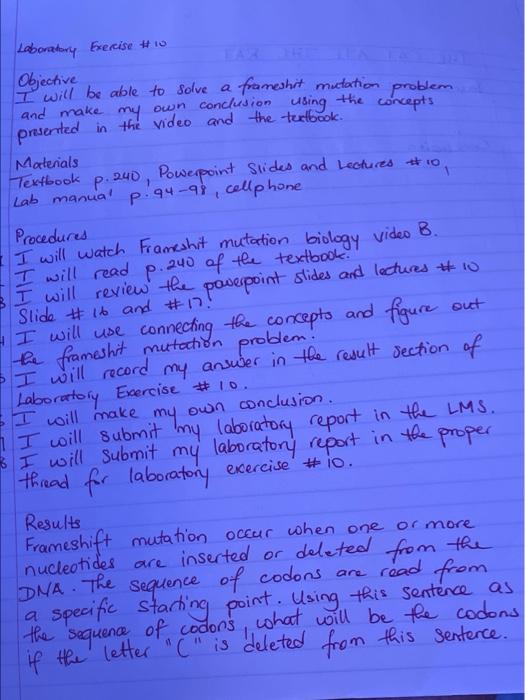 Laboratory Exercise #10
Objective
I will be able to solve a frameshit mutation problem
and make my own conclusion using the concepts
presented in the video and the textbook.
Materials
Textbook p.240, Powerpoint Slides and Lectures #10,
Lab manual p.94-98, cellphone
Procedures
I will watch Frameshit mutation biology video B.
I will read p.240 of the textbook.
3 I will review the powerpoint slides and lectures #10
Slide #16 and #17.
4 I will use connecting the concepts and figure out
the frameshit mutation problem.
5 I will record my answer in the result section of
Laboratory Exercise #10.
6 I will make my own conclusion.
7 I will submit my laboratory report in the LMS.
8 I will submit my laboratory report in the proper
thread for laboratory exercise #10.
Results
Frameshift mutation occur when one or more
nucleotides are inserted or deleted from the
DNA. The sequence of codons are read from
a specific starting point. Using this sentence as
the sequence of codons, what will be the codons
if the letter "C" is deleted from this sentence.